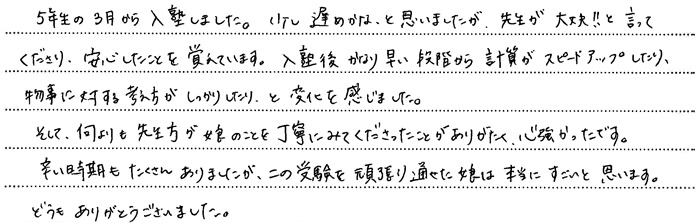 5年生の3月から入塾しました。少し遅めかな、と思いましたが、先生が大丈夫!!と言って
くださり、安心したことを覚えています。入塾後かなり早い段階から計算がスピードアップしたり、
物事に対する考え方がしっかりしたり、と変化を感じました。
そして、何よりも先生方が娘のことを丁寧にみてくださったことがありがたく、心強かったです。
辛い時期もたくさんありましたが、この受験を頑張り通せた娘は本当にすごいと思います。
どうもありがとうございました。